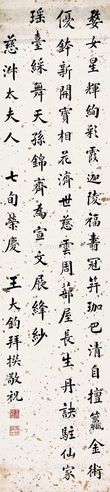 婺女星輝絢彩霞迦陵福壽冠幷珈巴清自擅籯金術
優鉢新開寶相花濟世慈雲周蔀屋長生丹訣駐仙家
瑤臺綵舞天孫錦齊為宣文展絳紗
慈淋太夫人七旬榮慶王大鈞拜撰敬祝